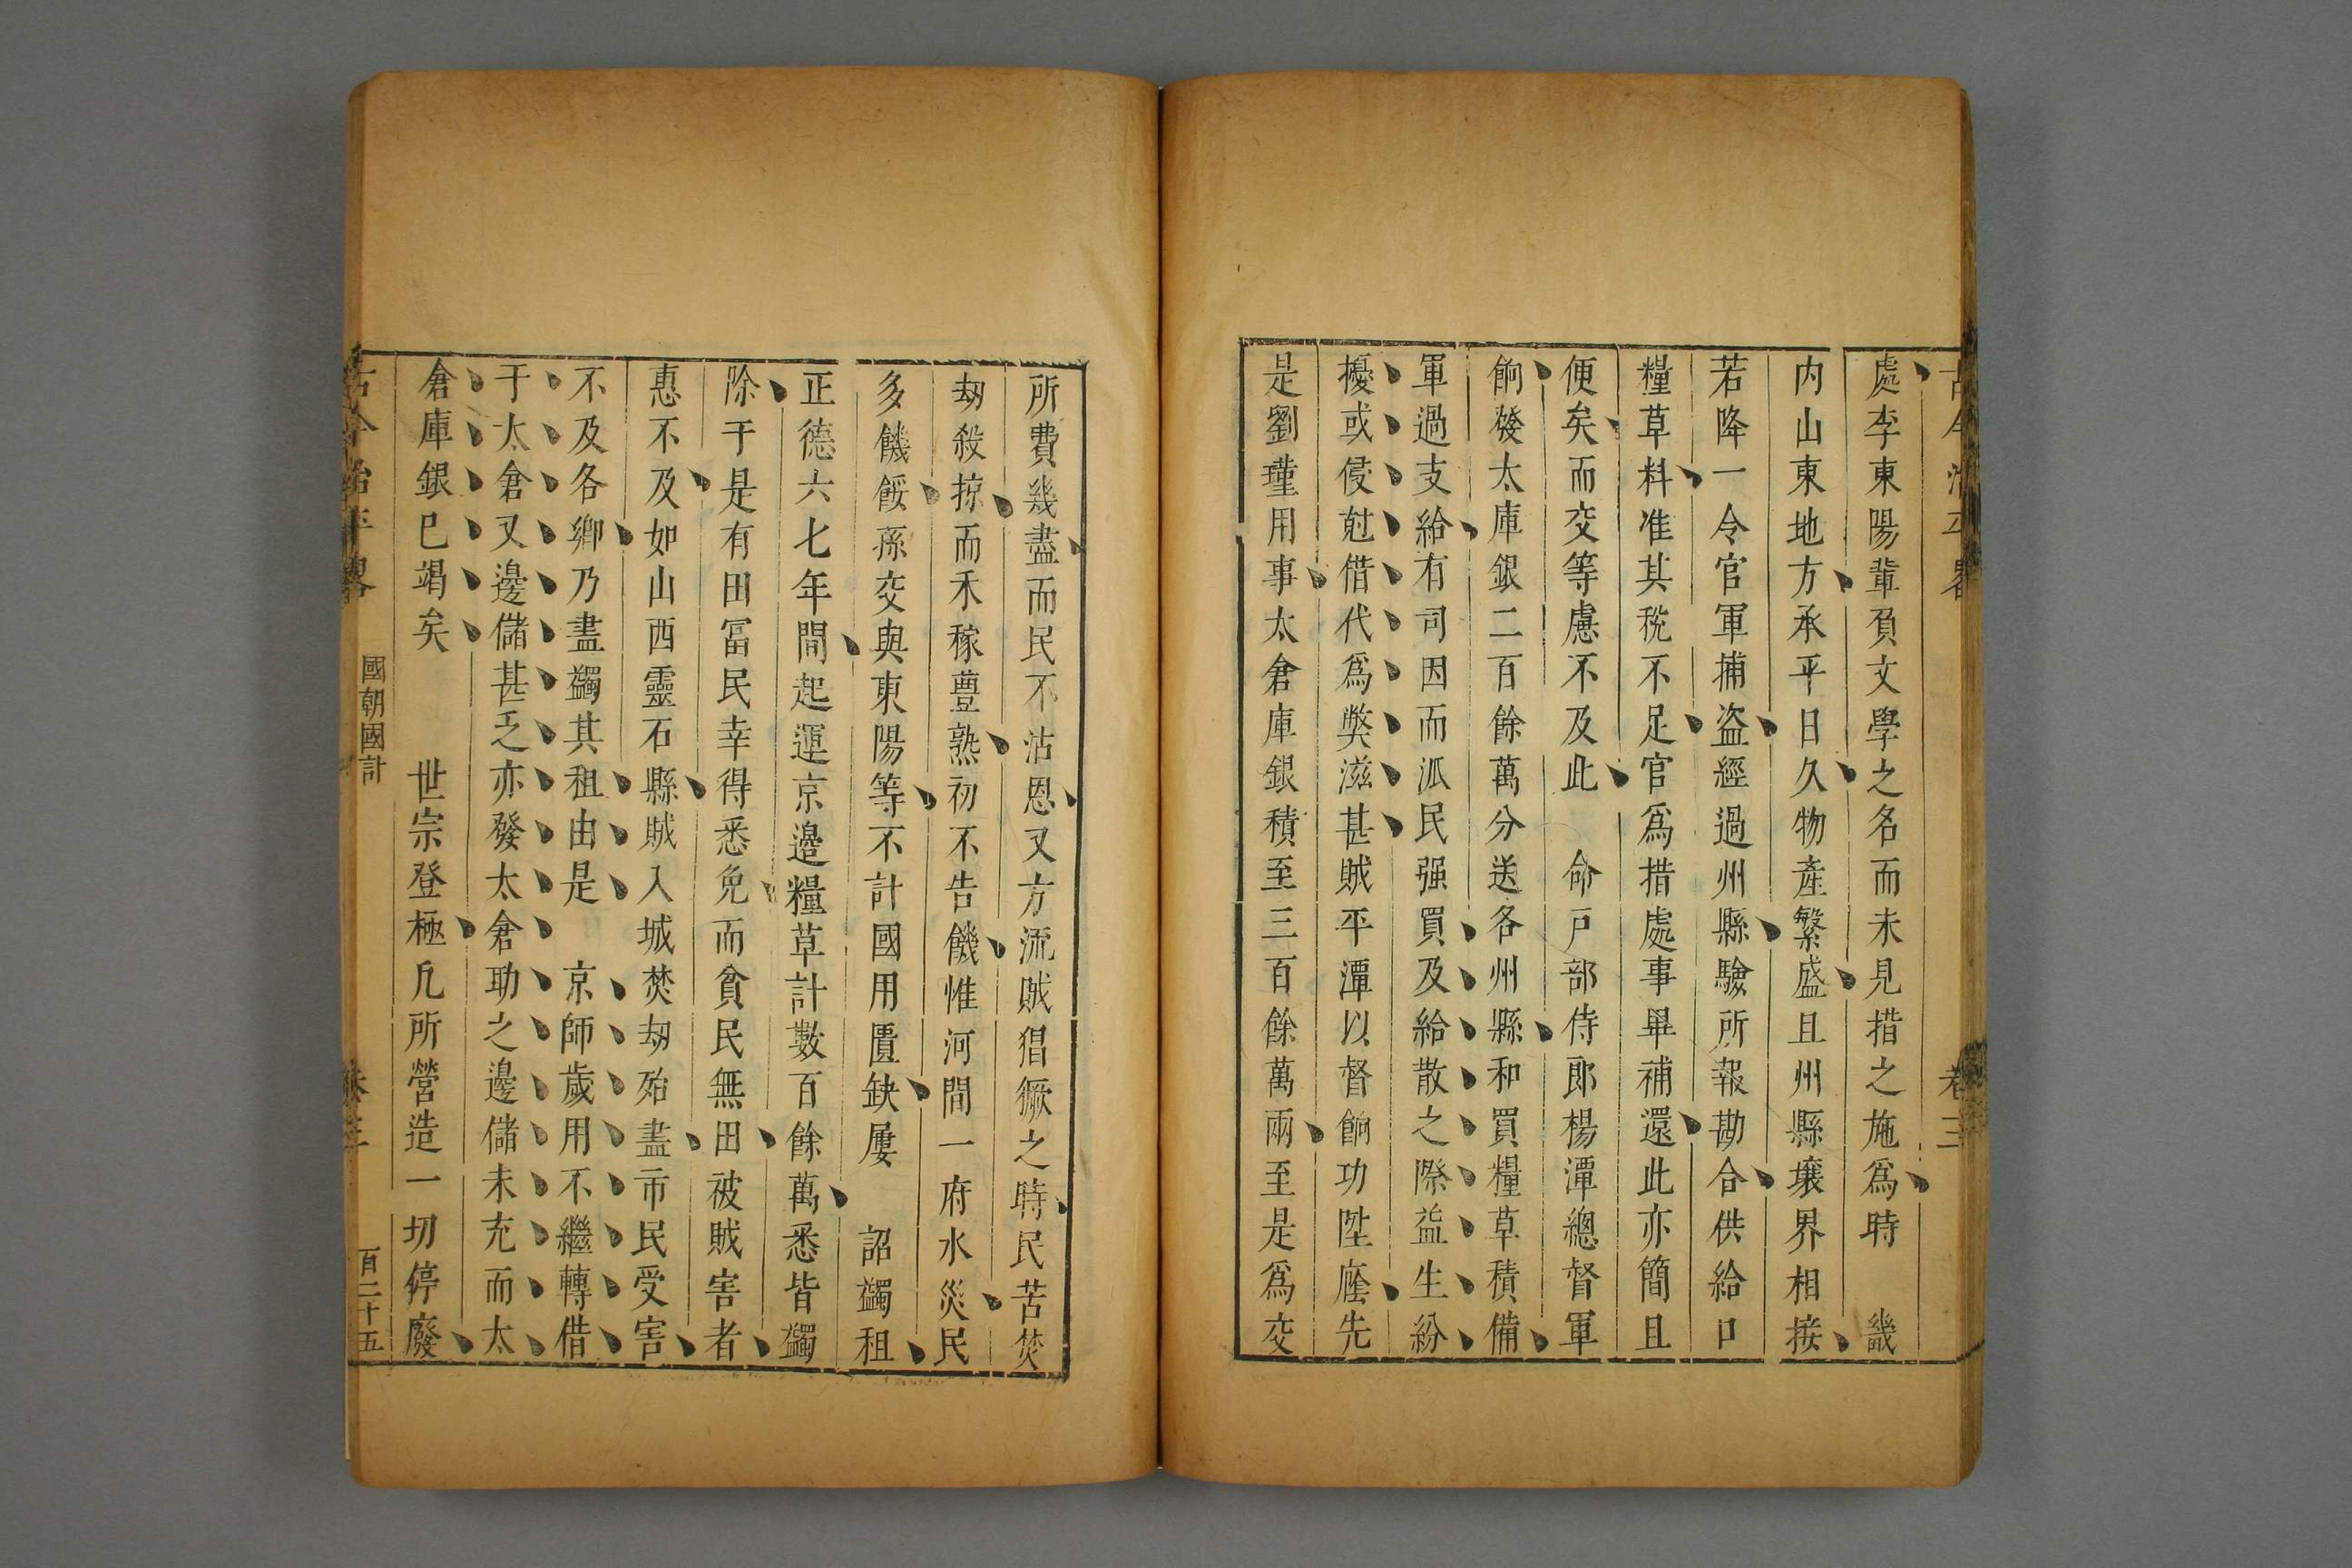 古今治平畧　卷三
處李東陽輩負文學之名而未見措之施爲時　畿
内山東地方承平日久物產繁盛且州縣壤界相接
若降一令官軍捕盗經過州縣驗所報勘合供給口
糧草料准其稅不足官爲措處事畢補還此亦簡且
便矣而交等慮不及此　命戸部侍郎楊潭總督軍
餉發太庫銀二百餘萬分送各州縣和買糧草積備
軍過支給有司因而派民强買及給散之際益生紛
擾或侵尅借代爲獘滋甚賊平潭以督餉功陞廕先
是劉瑾用事太倉庫銀積至三百餘萬兩至是爲交
所費幾盡而民不沾恩又方流賊猖獗之時民苦焚
刼殺掠而禾稼豊熟初不告饑惟河間一府水災民
多饑餒孫交與東陽等不計國用匱缺屢　詔蠲租
正德六七年間起運京邊糧草計數百餘萬悉皆蠲
除于是有田冨民幸得悉免而貧民無田被賊害者
惠不及如山西靈石縣賊入城焚刼殆盡市民受害
不及各鄉乃盡蠲其租由是　京師歲用不繼轉借
于太倉又邊儲甚乏亦發太倉助之邊儲未充而太
倉庫銀已竭矣　　世宗登極凡所營造一切停廢
古今治平畧　國朝國計　卷三　百二十五